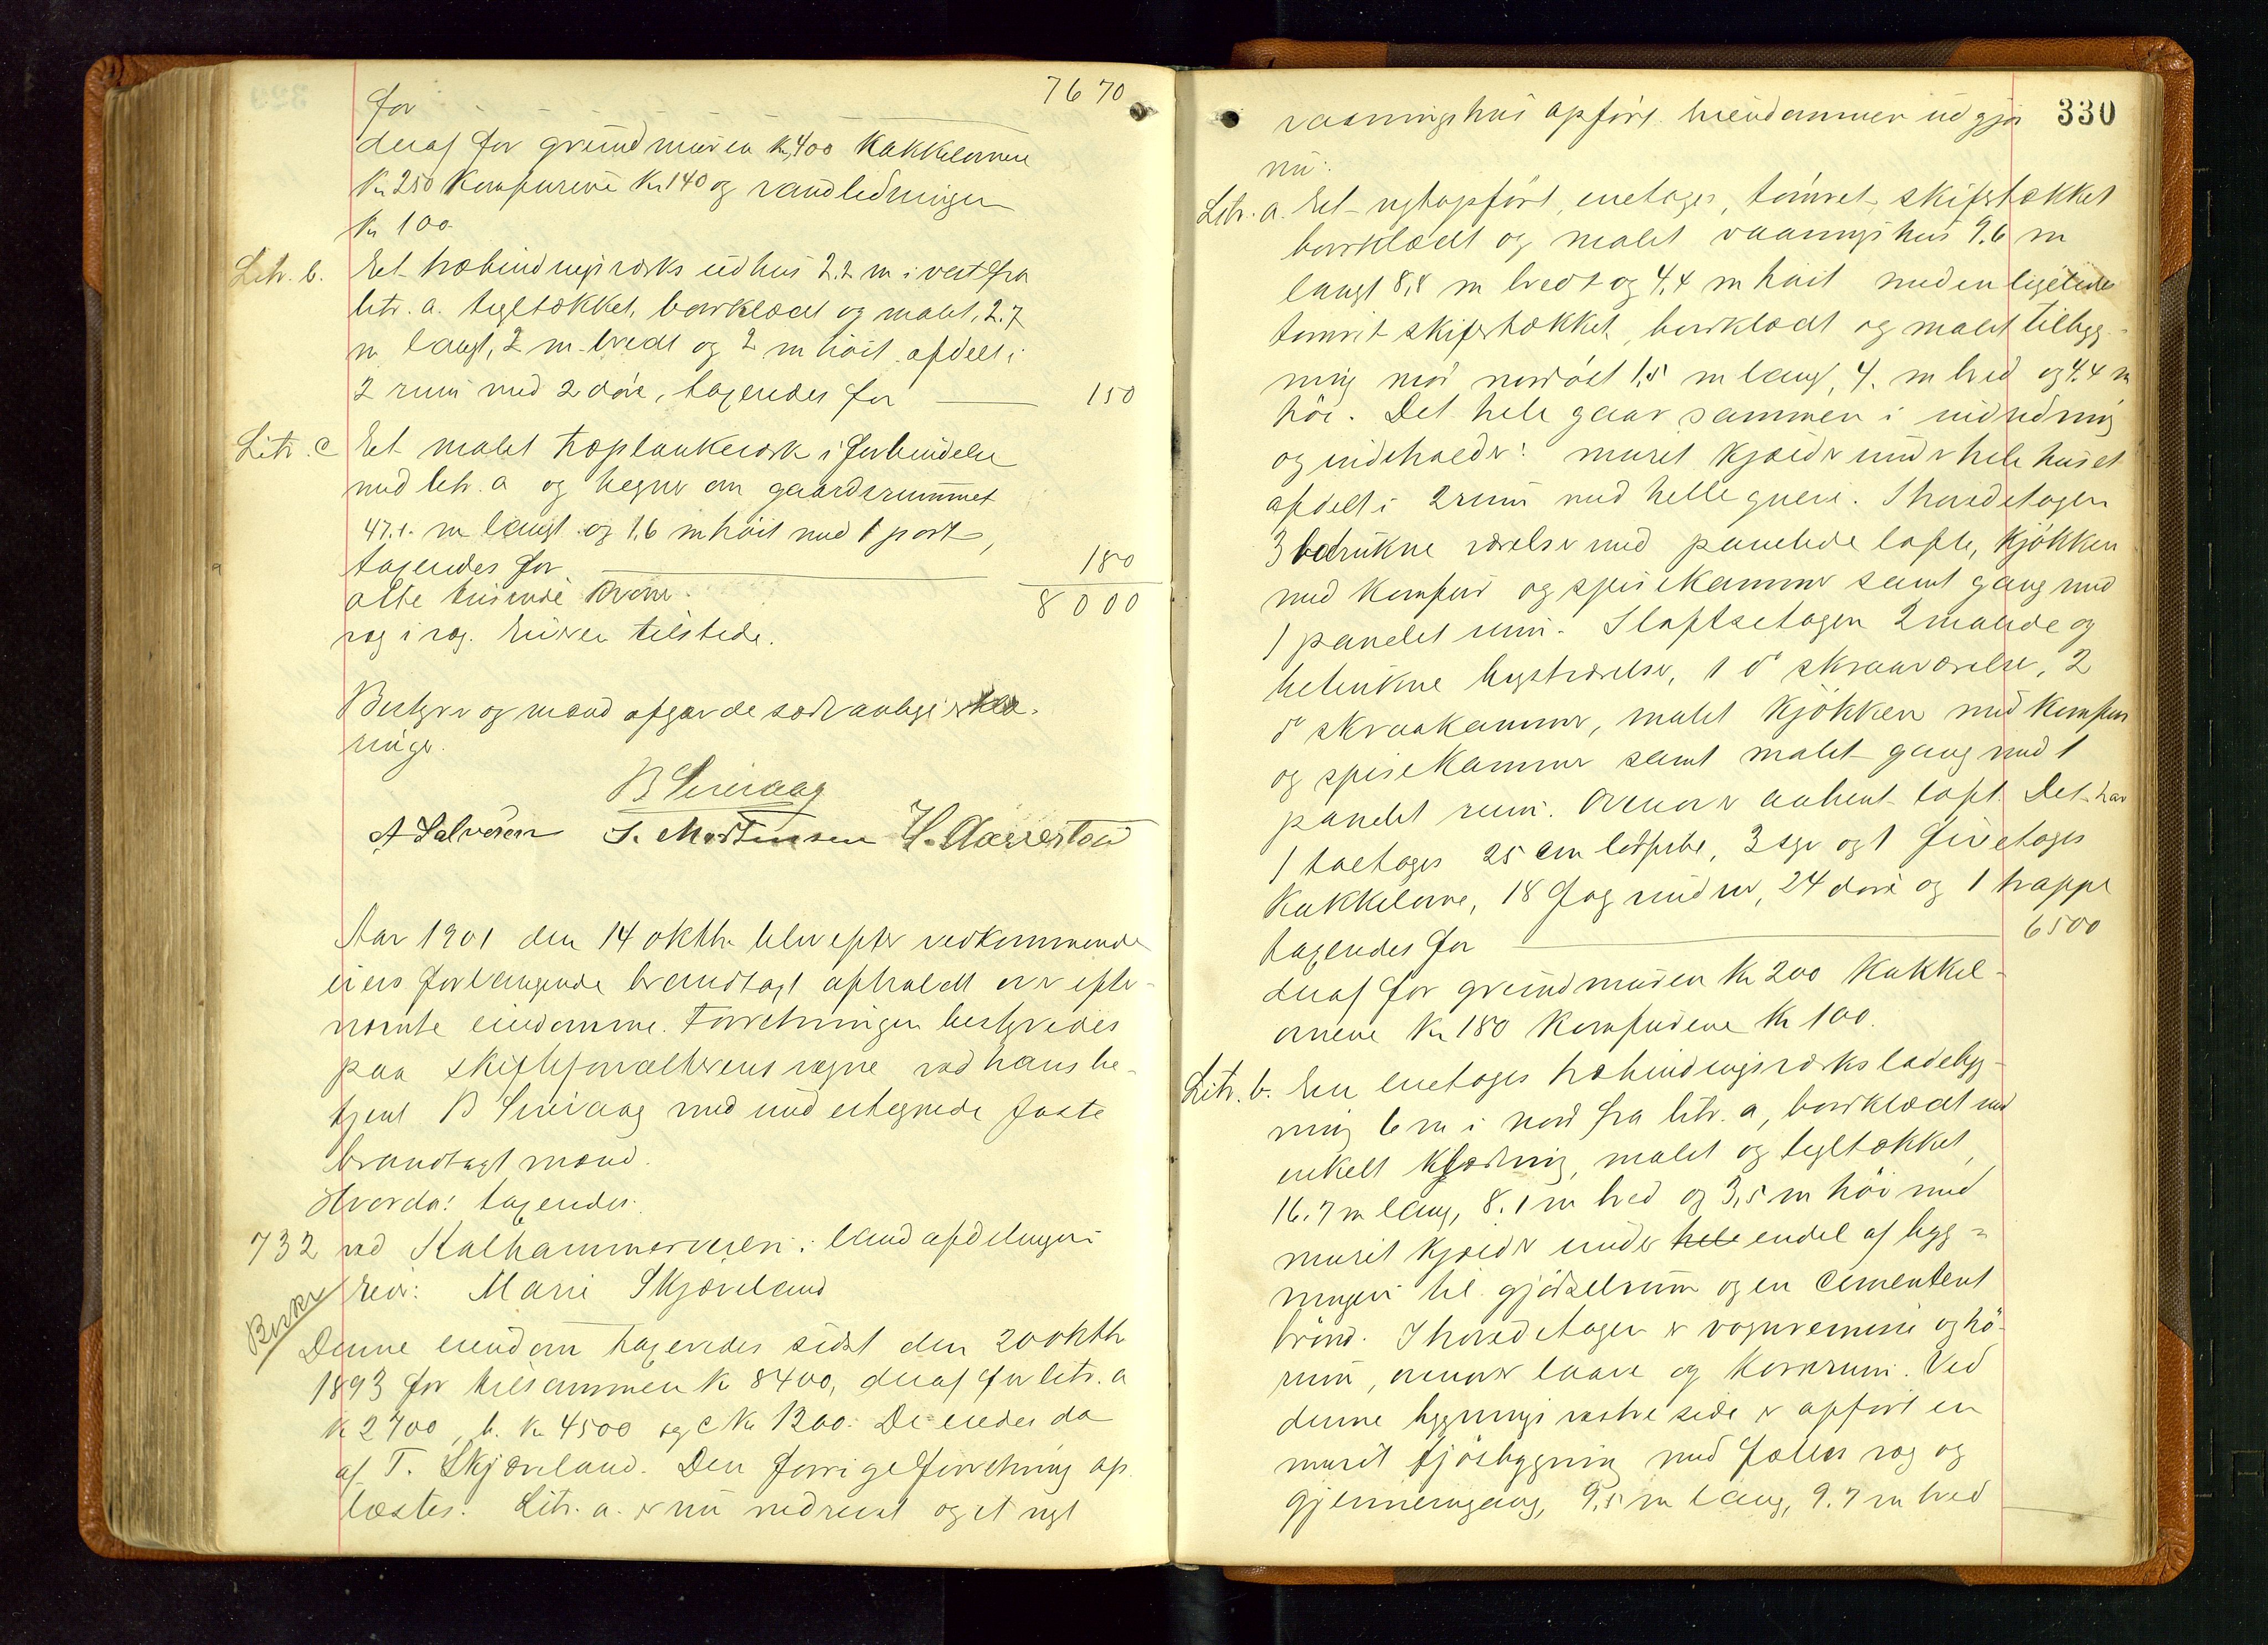 for 7670
deraf for grundmuren Kr, 400 Kakkelovnene
Kr 250 Komfurene Kr 140 og vandledningen
Kr 100.
Litr. b. Et træbindingsværks udhus 2.2 m i vest fra
litr. a. tegltækket, bordklædt og malet, 2.7
m langt, 2 m bredt og 2 m höit afdelt i
2 rum med 2 döre, taxeredes for 150
Litr. c Et malet træplankeværk i forbindelse
med litr. a og hegner om gaardsrummet
47.1. m langt og 1.6 m höit med 1 port,
taxeredes for 180
otte tusinde kroner. 8000
vag i vag. Eieren tilstede.
Bestyrer og mænd afgav de sædvanlige erklæ-
ringer.
B Sirevaag
A Salvesen T. Mortensen H. Aarrestad
Aar 1901 den 14 oktbr blev efter vedkommende
eiers forlangende brandtaxt afholdt over efter-
nævnte eiendomme. Forretningen bestyredes
paa skifteforvalterens vegne ved hans be-
tjent B Sirevaag med undertegnede faste
brandtaxtmænd.
Hvorda: taxeredes.
732 ved Kalhammerveien i landafdelingen
Beskr Eier: Marie Skjæveland
Denne eiendom taxeredes sidst den 20 oktbr
1893 for tilsammen Kr 8400, deraf for litr. a
Kr 2700, b. Kr 4500 og c Kr 1200. De eiedes da
af T. Skjæveland. Den forrige forretning op-
læstes. Litr. a. er nu nedrevet og et nyt
330
vaaningshus opfört. Eiendommen udgjör
nu:
Litr. a. Et nyopfört, enetages, tömret, skifertækket
bordklædt og malet vaaningshus 9.6 m
langt 8,8 m bredt og 4,4 m höit med en ligeledes
tömret skifertækket, bordklædt og malet tilbyg-
ning mod nordöst 1,5 m lang, 4. m bred og 4.4 m
höi. Det hele gaar sammen i indredning
og indeholder: muret kjælder under hele huset
afdelt i 2 rum med hellegulve. I hovedetagen
3 betrukne værelser med panelede lofte, kjökken
med komfur og spisekammer samt gang med
1 panelet rum. I loftsetagen 2 malede og
betrukne kvistværelser, 1 do skraaværelse, 2
do skraakammer, malet kjökken med komfur
og spisekammer samt malet gang med 1
panelet rum. Ovenover aabent loft. Det har
1 toetages 25 cm lödpibe, 3 syv og 1 fireetages
kakkelovne, 18 fag vinduer, 24 döre og 1 trappe
taxeredes for 6500
deraf for grundmuren Kr 200 Kakkel-
ovnene Kr 180 Komfurene Kr 100.
Litr. b. En enetages træbindingsværks ladebyg-
ning 6 m i nord fra litr. a, bordklædt med
enkelt klædning, malet og tegltækket,
16.7 m lang, 8.1 m bred og 3,5 m höi med
muret kjælder under hele endel af byg-
ningen til gjödselrum og en cementeret
brönd. I hovedetagen er vognremise og hö-
rum, ovenover laave og kornrum. Ved
denne bygnings vestre side er opfört en
muret fjösbygning med fælles væg og
gjennemgang, 9,5 m lang, 9.7 m bred